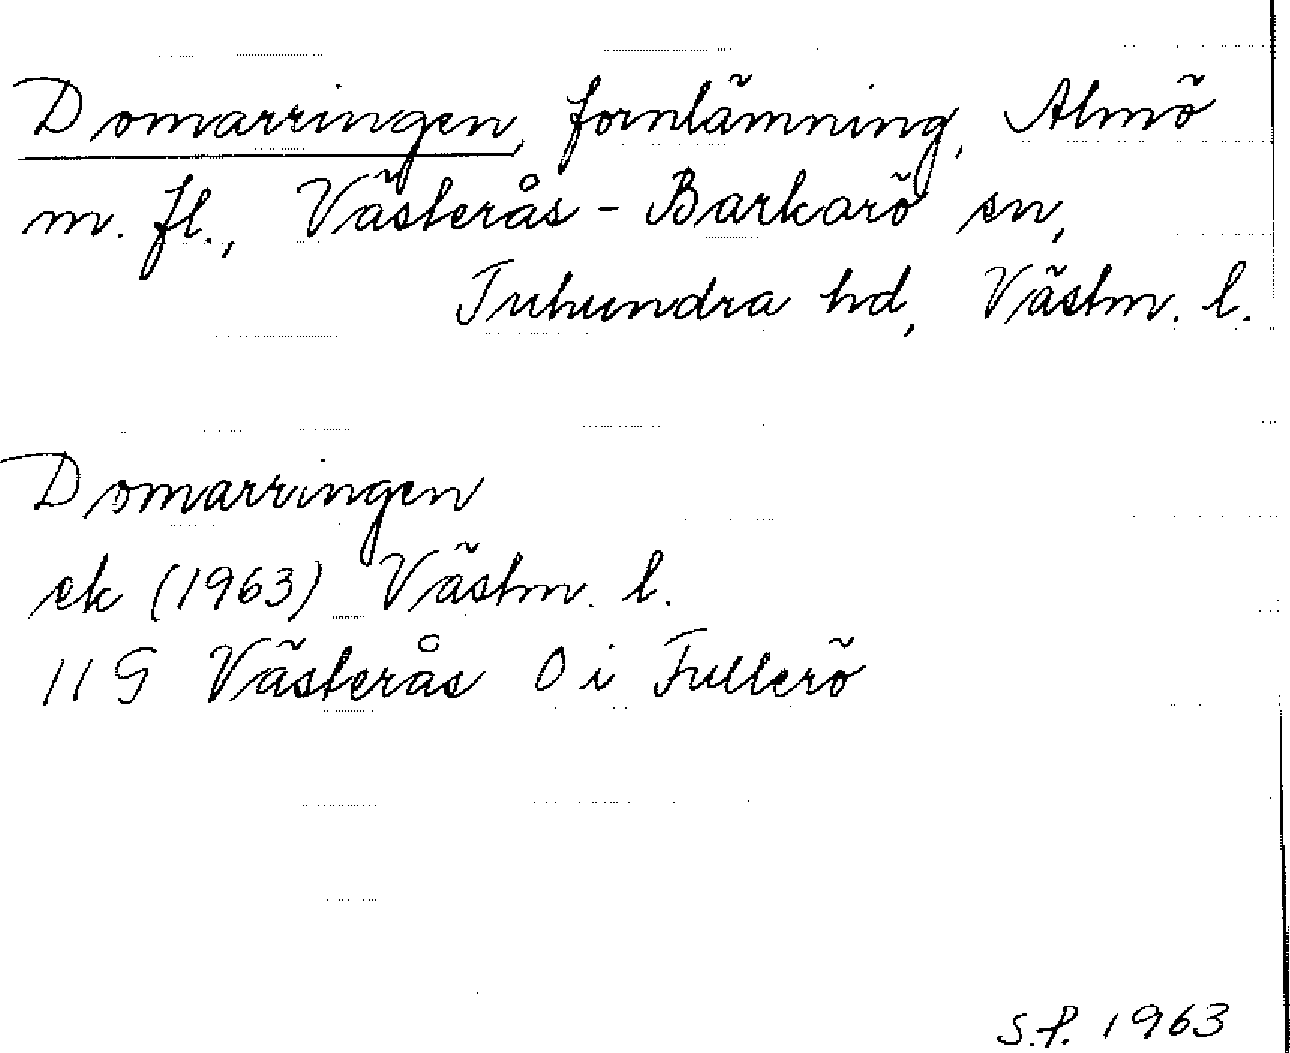 Domarringen, fornlämning, Almö
m. fl., Västerås-Barkarö sn,
Tuhundra hd, Västm. l.
Domarringen
ek (1963) Västm. l.
11G Västerås O i Fullerö
S.P. 1963